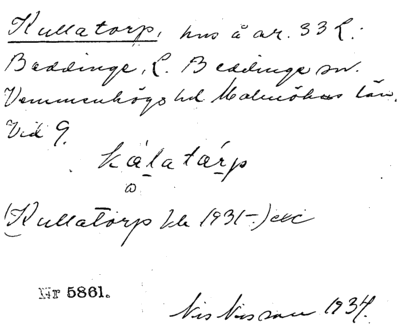 Kullatorp, hus å ar. 33 L.
Beddinge, L. Beddinge sn.
Vemmenhögs hd Malmöhus län.
Vid 9.
kálatárp
(Kullatorp kb 1931-) etc
Nr 5861.
Nils Nilsson 1934.